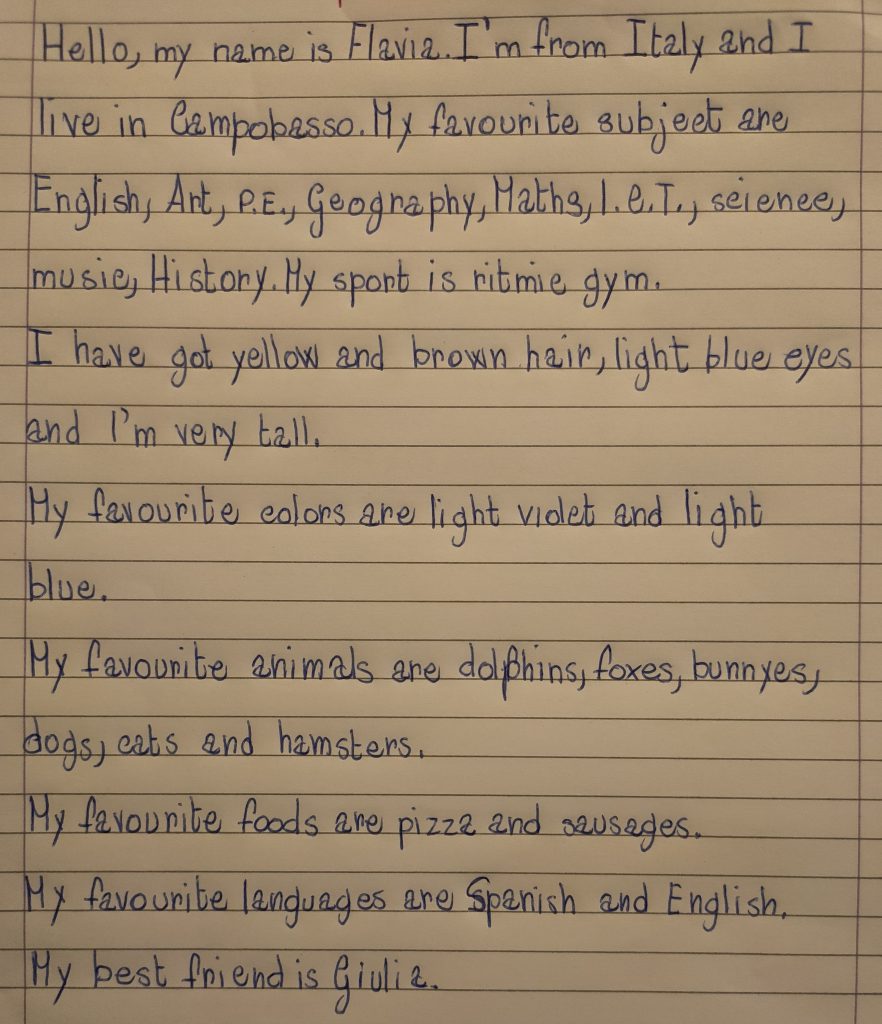 Hello, my name is Flavia. I'm from Italy and I
live in Campobasso. My favourite subject are
English, Art, P.E., Geography, Maths, I.C.T., science,
music, History. My sport is ritmic gym.
I have got yellow and brown hair, light blue eyes
and I'm very tall.
My favourite colors are light violet and light
blue.
My favourite animals are dolphins, foxes, bunnyes,
dogs, cats and hamsters.
My favourite foods are pizza and sausages.
My favourite languages are Spanish and English.
My best friend is Giulia.